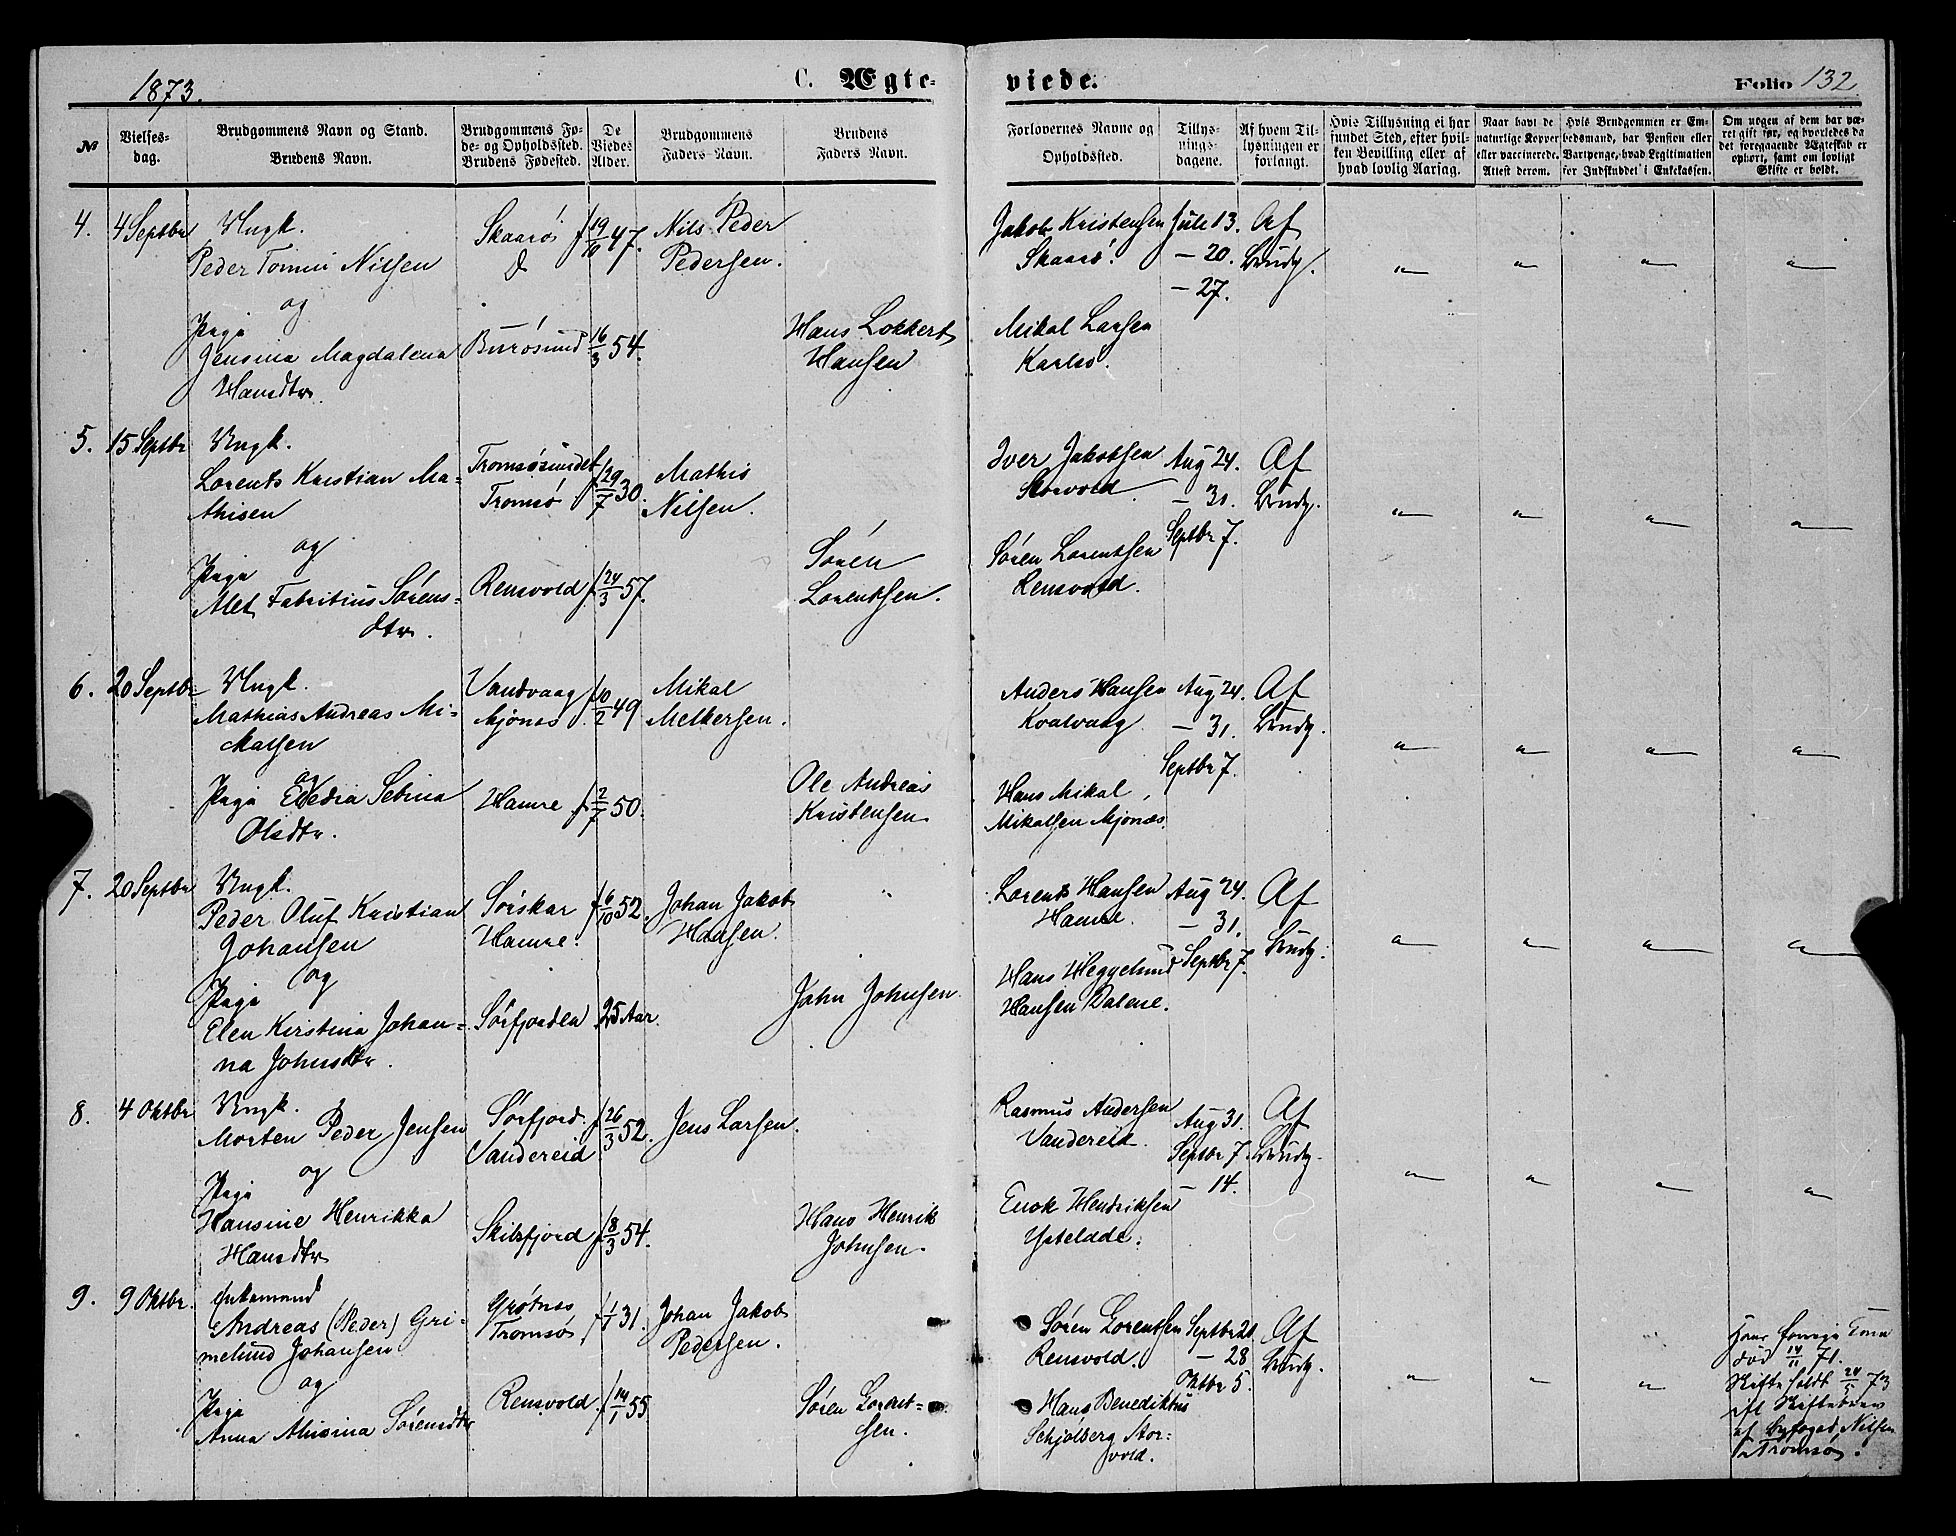 1873.
C. Ægte-
viede.
Folio 132
№
Vielses-
dag.
Brudgommens Navn og Stand.
Brudens Navn.
Brudgommens Fø-
de- og Opholdssted.
Brudens Fødested.
De
Viedes
Alder.
Brudgommens
Faders Navn.
Brudens
Faders Navn.
Forlovernes Navne og
Opholdssted.
Tillys-
nings-
dagene.
Af hvem Til-
lysningen er
forlangt.
Hvis Tillysning ei har
fundet Sted, efter hvil-
ken Bevilling eller af
hvad lovlig Aarsag.
Naar havt de
naturlige Kopper
eller vaccinerede.
Attest derom.
Hvis Brudgommen er Em-
bedsmand, har Pension eller
Vartpenge, hvad Legitimation
for Indskuddet i Enkekassen.
Om nogen af dem har væ-
ret gift før, og hvorledes da
det foregaaende Ægteskab er
ophørt, samt om lovligt
Skifte er holdt.
4. 4 Septbr
Ungk.
Peder Tomni Nilsen
og
Pige
Jensina Magdalena
Hansdtr.
Skaarø
Burøsund
f 19/10 47.
16/3 54.
Nils Peder
Pedersen.
Hans Lokkert
Hansen
Jakob Kristensen
Skaarø.
Mikal Larsen
Karlsø.
Jule 13.
— 20.
— 27.
Af
Brudg.
5. 15 Septbr
Ungk.
Lorents Kristian Ma-
thisen
og
Pige
Met Fabritius Sørens-
dtr.
Tromsøsundet
Tromsø
Rensvold
f 29/7 30.
f 24/3 57.
Mathis
Nilsen.
Søren
Lorentsen.
Iver Jakobsen
Storvold.
Søren Lorentsen
Rensvold.
Aug 24.
— 31.
Septbr 7.
Af
Brudg.
6. 20 Septbr
Ungk.
Mathias Andreas Mi-
kalsen
og
Pige Elledia Sebina
Olsdtr.
Vandvaag
Mjønes
Hamre
f 10/2 49
f 2/7 50.
Mikal
Melkersen.
Ole Andreas
Kristensen
Anders Hansen
Kvalvaag
Hans Mikal
Mikalsen Mjønæs.
Aug 24.
— 31.
Septbr 7.
Af
Brudg.
7. 20 Septbr
Ungk.
Peder Oluf Kristian
Johansen
og
Pige
Elen Kirstina Johan-
na Johnsdtr.
Sørskar
Hamre.
Sørfjorden
f 6/10 52.
25 Aar.
Johan Jakob
Hansen.
John Johnsen.
Lorents Hansen
Hamre.
Hans Heggelund
Hansen Dalene.
Aug 24.
— 31.
Septbr 7.
Af
Brudg.
8. 4 Oktbr
Ungk.
Morten Peder Jensen
og
Pige
Hansine Henrikka
Hansdtr
Sørfjord.
Vandereid
Skibsfjord
f 26/3 52.
f 8/3 54.
Jens Larsen.
Hans Henrik
Johnsen.
Rasmus Andersen
Vandereid.
Enok Hendriksen
Aug 31.
Septbr 7.
— 14.
Af
Brudg.
9. 9 Oktbr.
Enkemand
Andreas (Peder) Gri-
melund Johansen
og
Pige
Anna Alusina Sørensdtr
Grøtnæs
Tromsø
Rensvold.
f 1/1 31.
f 14/1 55
Johan Jakob
Pedersen.
Søren Lorent-
sen.
Søren Lorentsen
Rensvold.
Hans Benediktus
Schjølberg Stor-
vold.
Septbr 21.
— 28
Oktbr 5.
Af
Brudg.
Hans forrige Kone
død 14/11 71.
Skifte holdt 24/5 73
ifl Skiftebrev
af Byfoged Nilsen
i Tromsø.